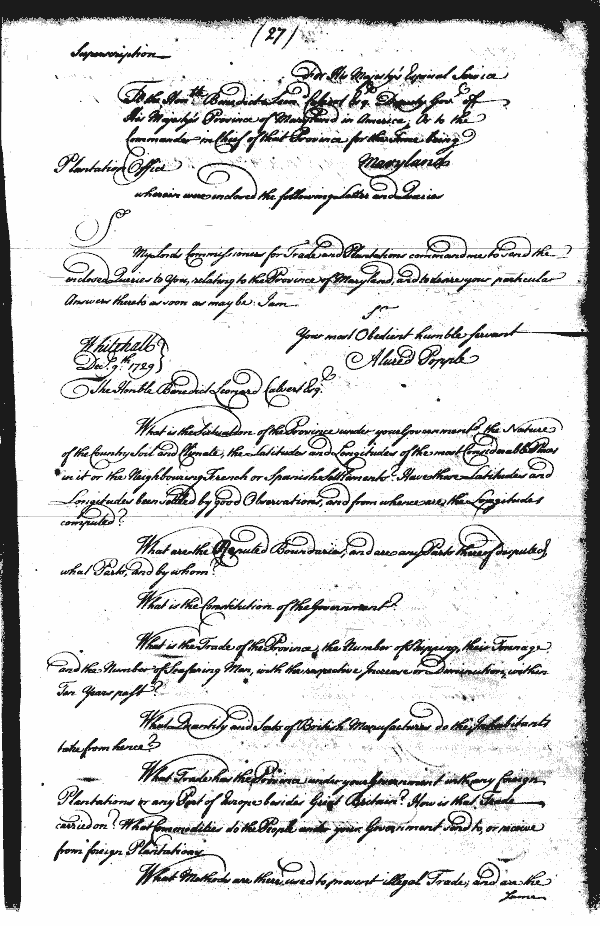 (27)
Superscription
For His Majesty's Especial Service
To the Hon.ble Benedict Leon.d Calvert Esq. Deputy Gov.r off
His Majesty's Province of Maryland in America, Or to the
Commander in Chief of that Province for the Time being
Plantation Office Maryland
wherein were enclosed the following Letter and Queries
S.r
My Lords Commissioners for Trade and Plantations command me to send the
inclosed Queries to You, relating to the Province of Maryland, and to desire your particular
Answers thereto as soon as may be. I am
S.r
Your most Obedient humble servant
Whitehall Alured Popple
Dec.r 9.th 1729
The Honble Benedict Leonard Calvert Esq.r
What is the Situation of the Province under your Government, the Nature
of the Country Soil and Climate, the Latitudes and Longitudes of the most Considerable Places
in it or the Neighbouring French or Spanish Settlements? Have those Latitudes and
Longitudes been settled by good Observations, and from whence are the Longitudes
computed?
What are the Reputed Boundaries, and are any Parts thereof disputed,
what Parts, and by whom?
What is the Constitution of the Government?
What is the Trade of the Province, the Number of Shipping, their Tonnage
and the Number of Seafaring Men, with the respective Increase or Diminution, within
Ten Years past?
What Quantity and Sorts of British Manufactures do the Inhabitants
take from hence?
What Trade has the Province under your Government with any foreign
Plantations or any Part of Europe besides Great Britain? How is that Trade
carried on? What Comodities do the People under your Government send to, or receive
from foreign Plantations
What Methods are there used to prevent illegal Trade, and are the
same